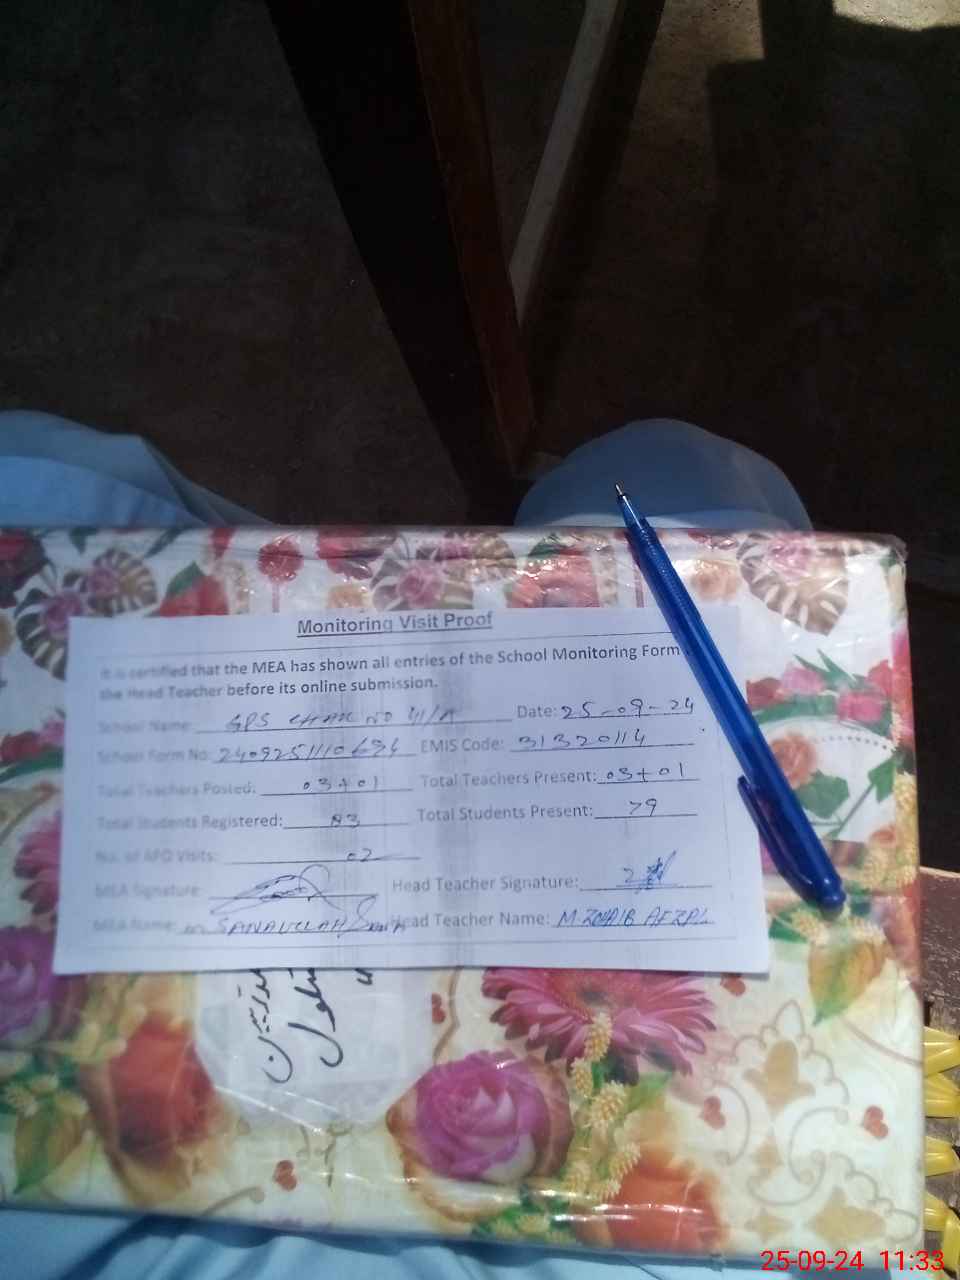 Monitoring Visit Proof
It is certified that the MEA has shown all entries of the School Monitoring Form
the Head Teacher before its online submission.
School Name: GPS CHAK NO 41/A Date: 25-09-24
School Form No: 2409251110694 EMIS Code: 31320114
Total Teachers Posted: 03+01 Total Teachers Present: 03+01
Total Students Registered: 83 Total Students Present: 79
No. of AFO Visits: 02
MEA Signature: Head Teacher Signature:
MEA Name: M. SANAULLAH Head Teacher Name: M. ZOHAIB AFZAL
مدرسین
25-09-24 11:33